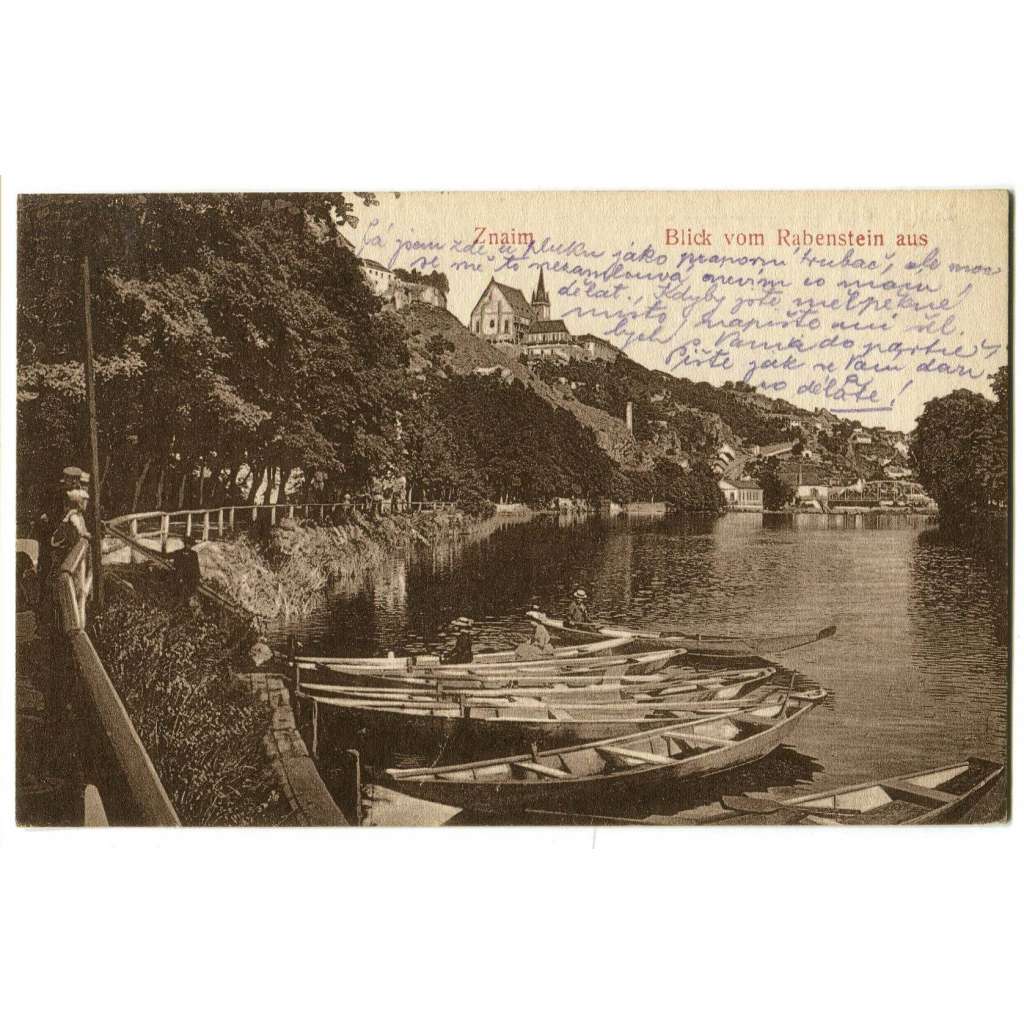 Znaim
Blick vom Rabenstein aus
Já jsem zde u pluku jako praporní trubač, ale moc
se mě to nezamlouvá nevím co mám
dělat. Kdyby jste měl pěkné
místo, napište mi šel
bych k Vám do
Pište jak se Vám daří
co děláte!